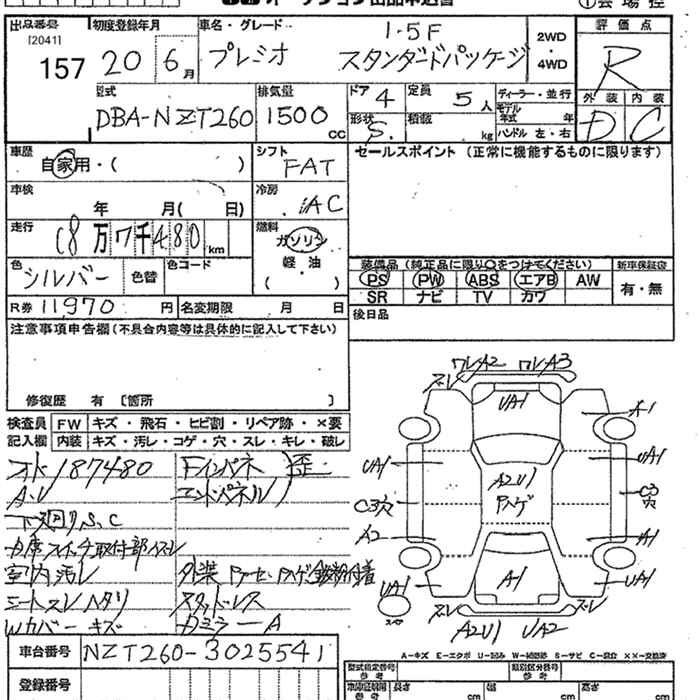 オークション出品申込書
①会場控
出品番号 初度登録年月 車名・グレード 評価点
[2041] 157 20 6月 プレミオ 1.5F スタンダードパッケージ 2WD・4WD R
型式 DBA-NZT260 排気量 1500 cc ドア 4 定員 5人 ディーラー・並行 外装 内装
形状 S. 積載 kg モデル年式 年 ハンドル 左・右 D C
車歴 自家用・( ) シフト FAT セールスポイント (正常に機能するものに限ります)
車検 年 月( 日) 冷房 AC
走行 18万7千480 km 燃料 ガソリン 軽・油 ( )
色 シルバー 色替 色コード
装備品(純正品に限り○をつけてください) 新車保証書
PS PW ABS エアB AW 有・無
SR ナビ TV カワ
R券 11,970 円 名変期限 月 日 後日品
注意事項申告欄(不具合内容等は具体的に記入して下さい)
修復歴 有 [箇所 ]
検査員記入欄 FW キズ・飛石・ヒビ割・リペア跡・×要
内装 キズ・汚レ・コゲ・穴・スレ・キレ・破レ
オト187480 Fインパネ 歪
A.V エンドパネル
下廻りS,C
室内汚レ
シートスレ ヘタリ スタッドレス
Wカバーキズ
車台番号 NZT260-3025541
登録番号
スレ ワレA2 ワレA3
UA1 A1
UA1 UA1
A2U1 Pハゲ
C3穴 C3穴
A2 A1
UA1 A1 UA1
スレ スレ
A2U1 UA2
A-キズ E-エクボ U-凹み W-補修跡 S-サビ C-腐食 ××-交換済
型式指定番号 参考 類別区分番号 参考
長さ cm 幅 cm 高さ cm